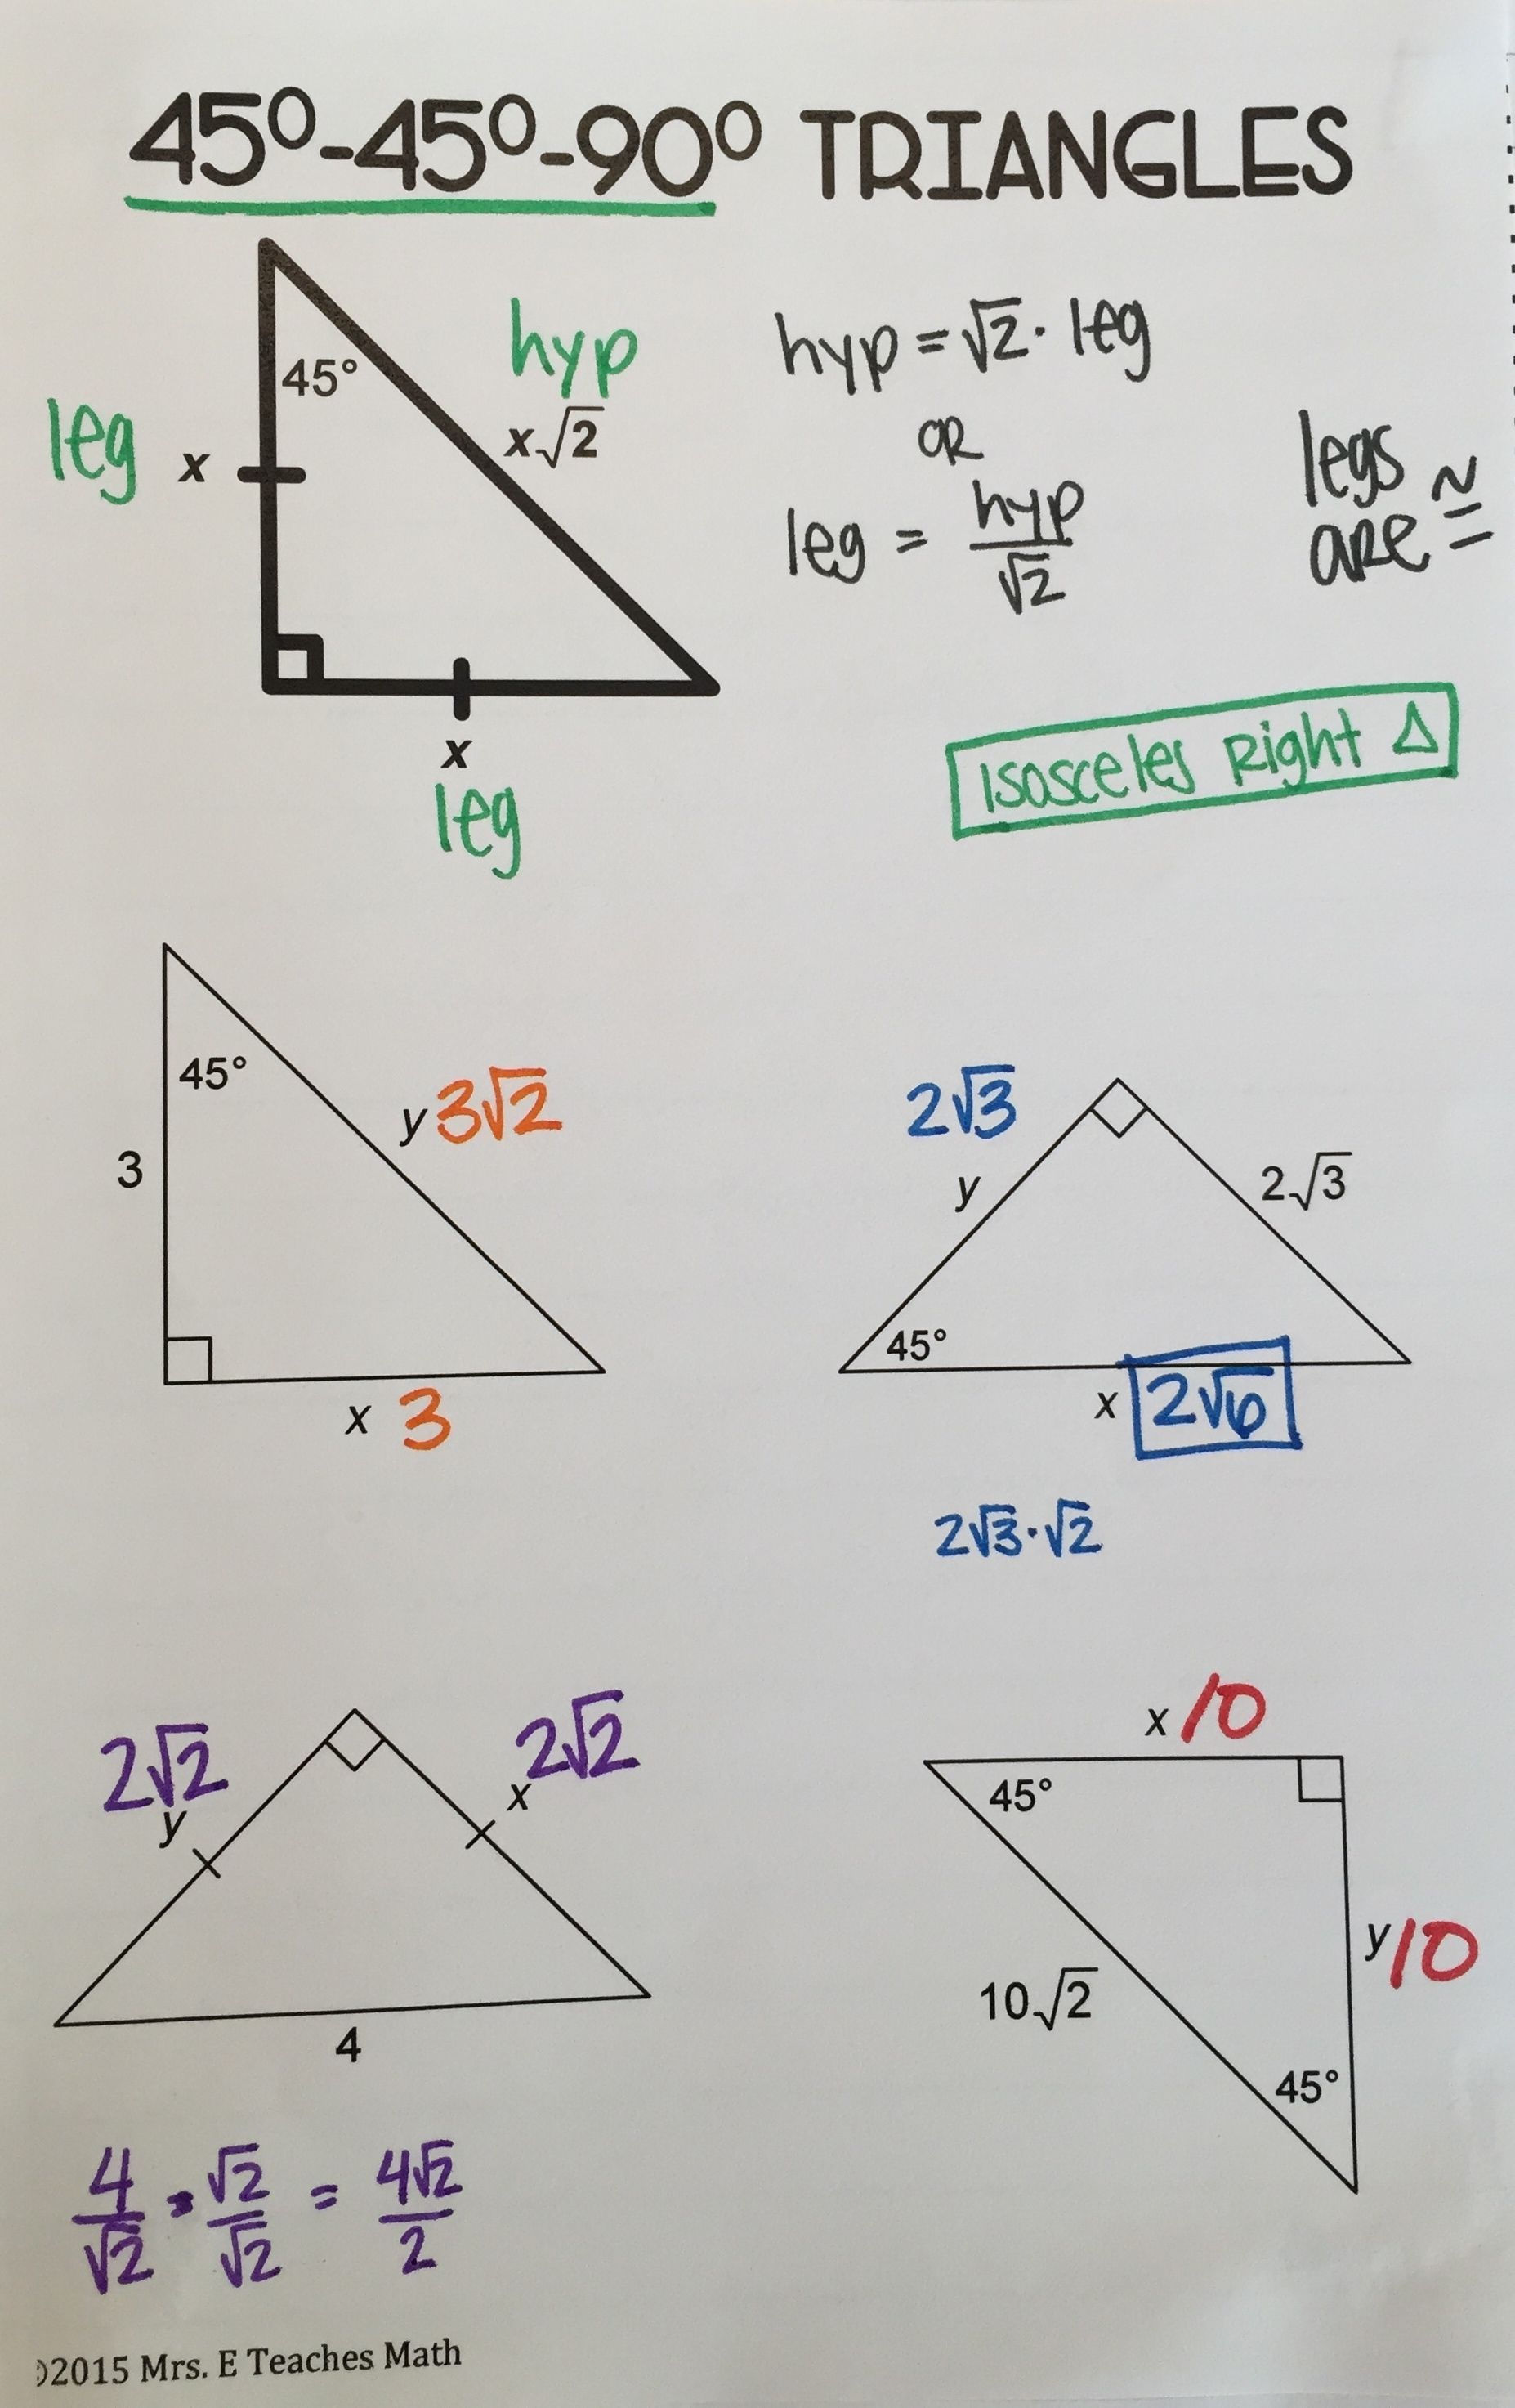 45°-45°-90° TRIANGLES
45°
hyp
x√2
leg x
x
leg
hyp = √2 · leg
OR
leg = hyp/√2
legs
are ≅
Isosceles Right Δ
45°
3
y 3√2
x 3
2√3
y
2√3
45°
x 2√6
2√3 · √2
2√2
y
2√2
x
4
4/√2 · √2/√2 = 4√2/2
x 10
45°
y 10
10√2
45°
©2015 Mrs. E Teaches Math